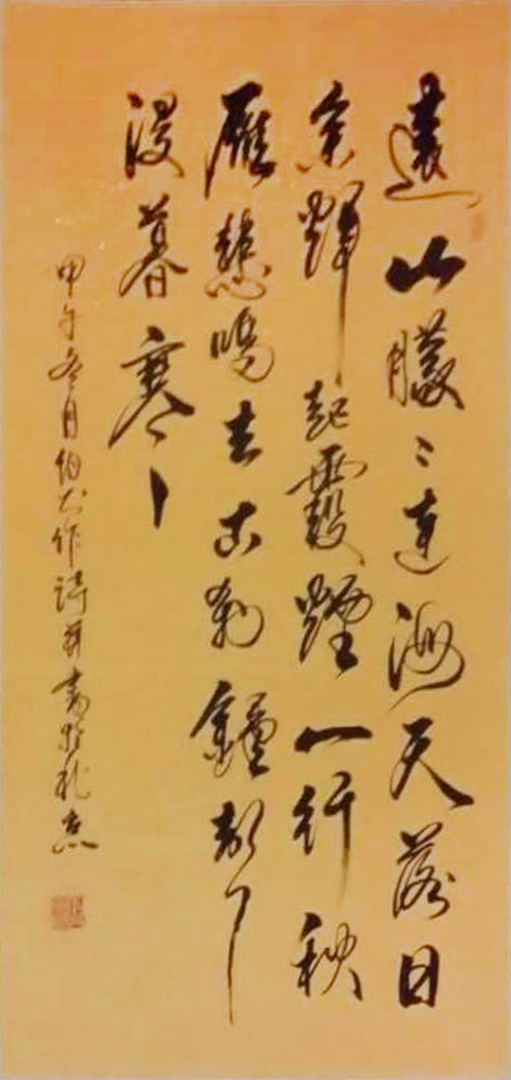 遠山朦々連海天落日
余輝起霞煙一行秋
雁愁鳴去古刹鐘聲
浸暮寒
甲午冬月伯作詩并書於